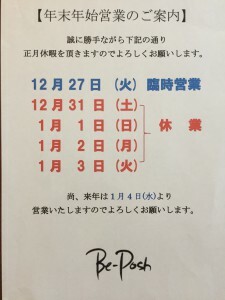 【年末年始営業のご案内】
誠に勝手ながら下記の通り
正月休暇を頂きますのでよろしくお願いします。
12月27日（火）臨時営業
12月31日（土）
1月 1日（日）休 業
1月 2日（月）
1月 3日（火）
尚、来年は1月4日(水)より
営業いたしますのでよろしくお願いします。
Be-Posh